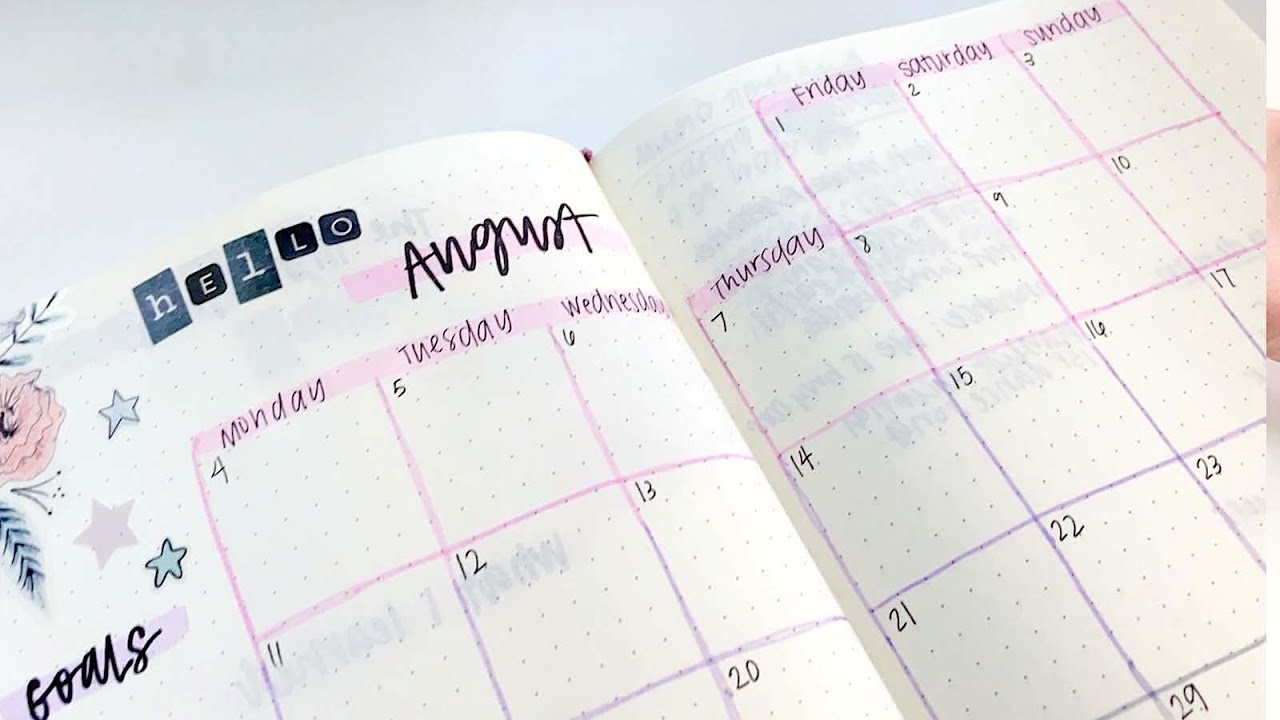 hELLO
August
Monday Tuesday Wednesday
4 5 6
11 12 13
20
goals
Friday Saturday Sunday
1 2 3
Thursday
7 8 9 10
14 15 16 17
21 22 23
29